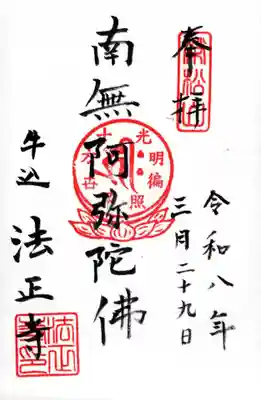 奉拝
令和八年
三月二十九日
光明徧照十方世
南無阿弥陀佛
牛込
法正寺